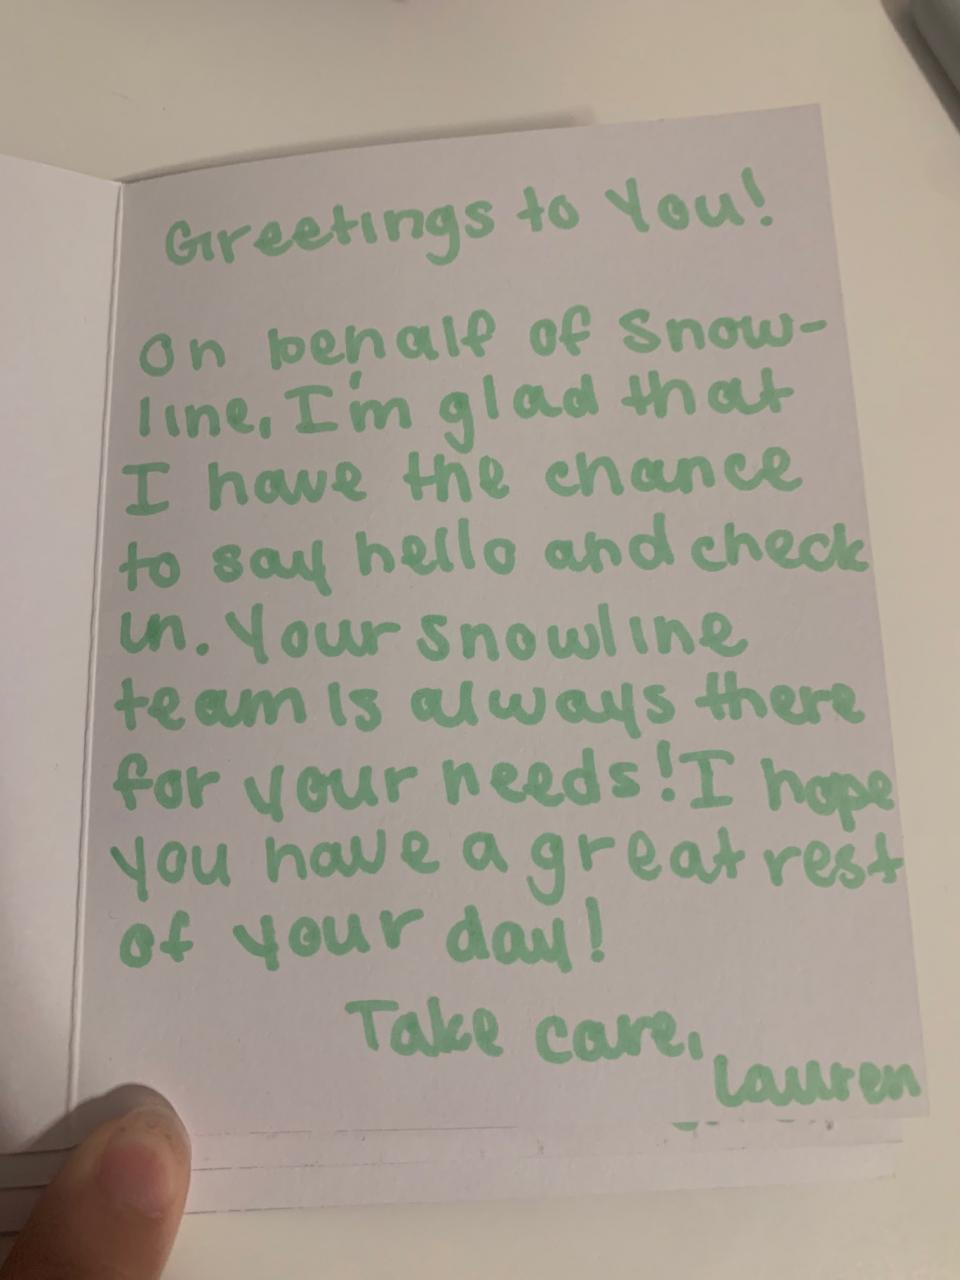 Greetings to You!
On behalf of Snow-
line, I'm glad that
I have the chance
to say hello and check
in. Your Snowline
team is always there
for your needs! I hope
you have a great rest
of your day!
Take care,
Lauren